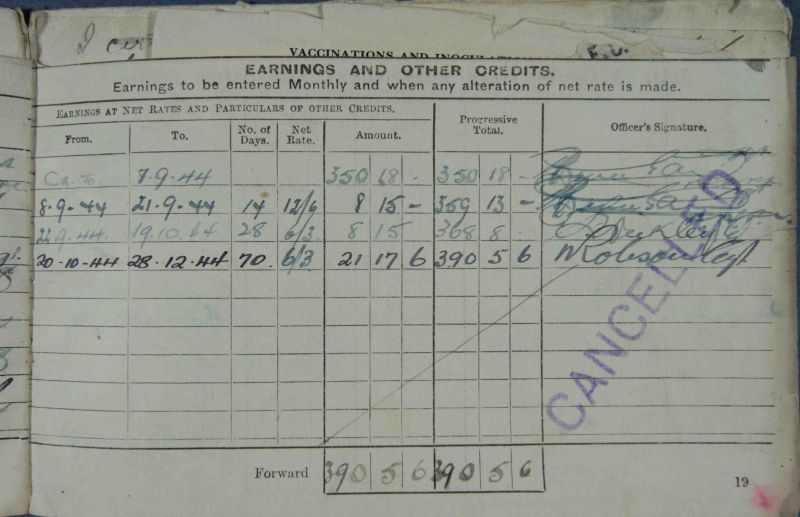 I cer
VACCINATIONS AND INOCULATION
EARNINGS AND OTHER CREDITS.
Earnings to be entered Monthly and when any alteration of net rate is made.
EARNINGS AT NET RATES AND PARTICULARS OF OTHER CREDITS.
From. To. No. of Days. Net Rate. Amount. Progressive Total. Officer's Signature.
7.9.44 350 18 - 350 18 -
8-9-44 21-9-44 14 12/6 8 15 - 359 13 -
22.9.44. 19.10.44 28 6/3 8 15 368 8
20-10-44 28.12.44 70. 6/3 21 17 6 390 5 6 Robison Capt
CANCELLED
Forward 390 5 6 390 5 6
19